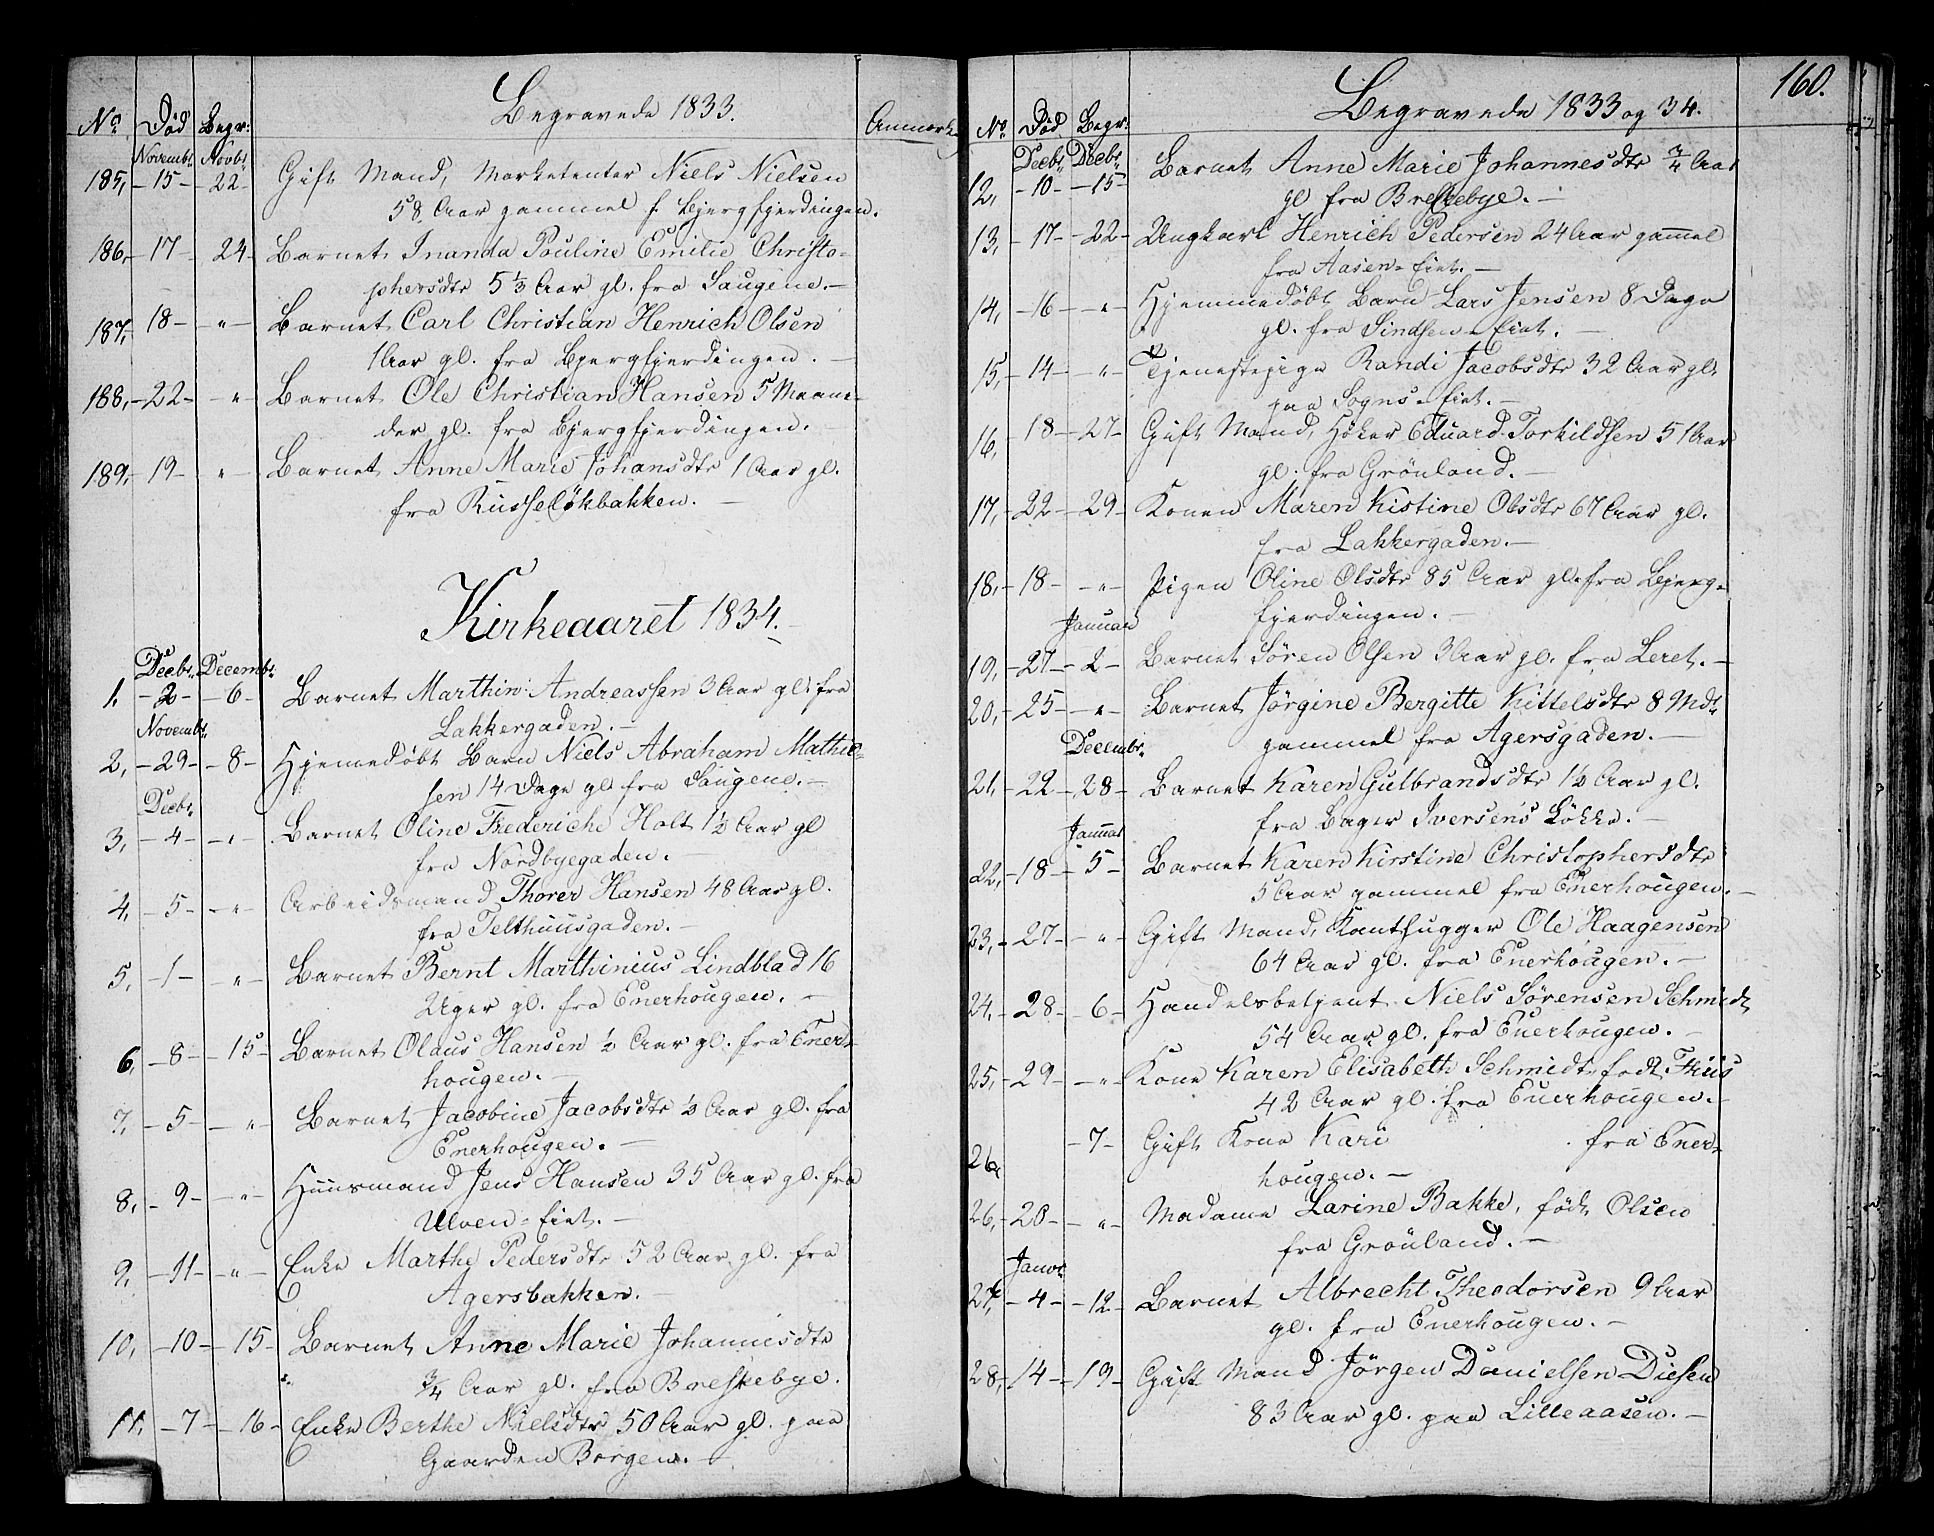 Begravede 1833.
No. Død Begr: Anmærk.
Novembr. Novbr.
185, -15- 22- Gift Mand, Marketenter Niels Nielsen
58 Aar gammel f. Bjergfjerdingen.
186, -17- 24- Barnet Inanda Pouline Emilie Christo-
phersdtr 5 1/3 Aar gl. fra Saugene.-
187, 18- -"- Barnet Carl Christian Henrich Olsen
1 Aar gl. fra Bjergfjerdingen. -
188, -22- -"- Barnet Ole Christian Hansen 5 Maane-
der gl. fra Bjergfjerdingen.
189, -19- " Barnet Anne Marie Johansdtr 1 Aar gl.
fra Russeløkbakken. -
Kirkeaaret 1834.
Decbr. Decembr.
1. -2- -6- Barnet Marthin Andreassen 3 Aar gl. fra
Lakkergaden. -
Novembr.
2, -29- -8- Hjemmedøbt Barn Niels Abraham Mathie-
sen 14 Dage gl fra Saugene. -
Decbr.
3, -4- -"- Barnet Oline Frederiche Holt 1½ Aar gl
fra Nordbyegaden. -
4, -5- -"- Arbeidsmand Thorer Hansen 48 Aar gl.
fra Telthuusgaden. -
5, -1- -"- Barnet Bernt Marthinius Lindblad 16
Uger gl. fra Enerhougen. -
6, -8- -15- Barnet Olaus Hansen ½ Aar gl. fra Ener-
hougen. -
7, -5- -"- Barnet Jacobine Jacobsdtr ½ Aar gl. fra
Enerhougen. -
8, -9- -"- Huusmand Jens Hansen 35 Aar gl. fra
Ulven-Eiet. -
9, -11- -"- Enke Marthe Pedersdtr 52 Aar gl. fra
Agersbakken. -
10, -10- -15- Barnet Anne Marie Johannisdtr
3/4 Aar gl. fra Breskebye.
11, -7- -16- Enke Berthe Nielsdtr 50 Aar gl. paa
Gaarden Borgen. -
160.
Begravede 1833 og 34.
No. Død Begr:
Decbr. Decbr.
12, -10- -15- Barnet Anne Marie Johannesdtr 3/4 Aar
gl fra Breskebye. -
13, -17- -22- Ungkarl Henrich Pedersen 24 Aar gammel
fra Aasen-Eiet. -
14, -16- -"- Hjemmedøbt Barn Lars Jensen 8 Dage
gl. fra Sindsen-Eiet. -
15, -14- -"- Tjenestepige Randi Jacobsdtr 32 Aar gl.
paa Sogns-Eiet. -
16, -18- -27- Gift Mand, Høker Eduard Torkildsen 51 Aar
gl. fra Grönland. -
17, -22- -29- Konen Maren Kistine Olsdtr 67 Aar gl.
fra Lakkergaden. -
18, -18- -"- Pigen Oline Olsdtr 85 Aar gl. fra Bjerg-
fjerdingen. -
Januar
19, -27- -2- Barnet Søren Olsen 3 Aar gl. fra Leret. -
20, -25- -"- Barnet Jørgine Bergitte Kittelsdtr 8 Mdr.
gammel fra Agersgaden. -
Decembr.
21, -22- -28- Barnet Karen Gulbrandsdtr 1½ Aar gl.
fra Bager Iversens Løkke. -
Januar
22, -18- -5- Barnet Karen Kirstine Christophersdtr
5 Aar gammel fra Enerhougen. -
23, -27- -"- Gift Mand, Kanthugger Ole Haagensen
64 Aar gl. fra Enerhougen. -
24, -28- -6- Handelsbetjent Niels Sørensen Schmidt
54 Aar gl. fra Enerhougen. -
25, -29- -"- Kone Karen Elisabeth Schmidt, født Thiis
42 Aar gl. fra Enerhougen. -
26a -7- Gift Kone Kari . fra Ener-
hougen. -
26, -20- -"- Madame Larine Bakke, født Olsen
fra Grönland. -
Janv.
27, -4- -12- Barnet Albrecht Theodorsen 9 Aar
gl. fra Enerhougen. -
28, -14- -19- Gift Mand Jörgen Danielsen Diesen
83 Aar gl. paa Lilleaasen. -